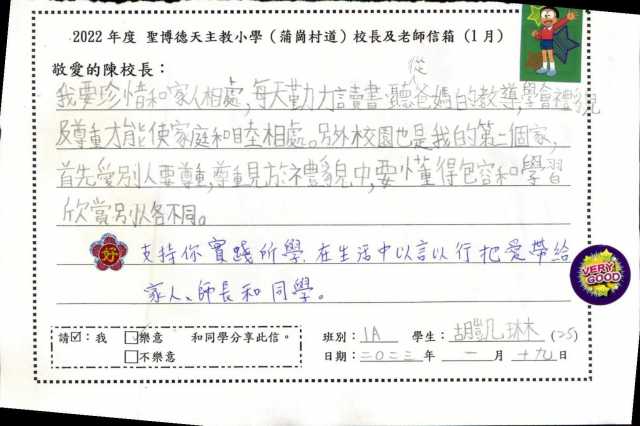 2022 年度 聖博德天主教小學（蒲崗村道）校長及老師信箱（1 月）
敬愛的陳校長：
從
我要珍惜和家人相處,每天勤力讀書,聽爸媽的教導,學會禮貌
及尊重才能使家庭和睦相處。另外校園也是我的第二個家,
首先愛別人要尊重,尊重見於禮貌中,要懂得包容和學習
欣賞別人各不同。
好
支持你實踐所學,在生活中以言以行把愛帶給
家人、師長和同學。
VERY GOOD
請☑：我 □樂意 和同學分享此信。
□不樂意
班別：1A 學生：胡凱琳 (25)
日期：二〇二三 年 一 月 十九 日